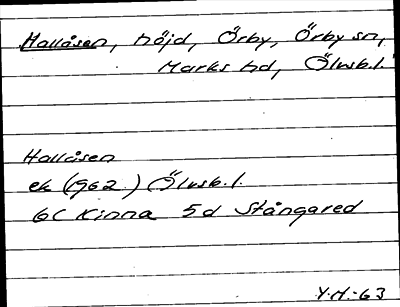 Hallåsen, höjd, Örby, Örby sn,
Marks hd, Älvsb.l.
Hallåsen
ek (1962) Älvsb.l.
6C Kinna 5d Stångared
Y.H.-63